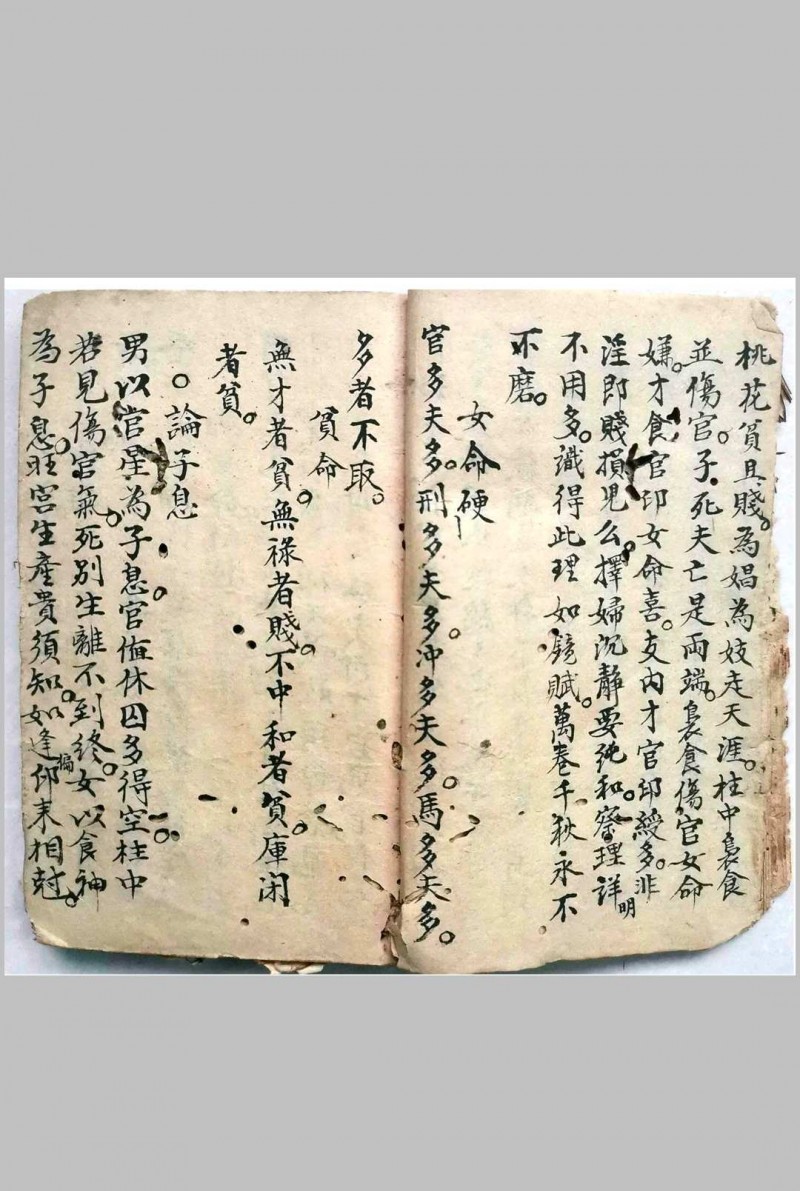 桃花貧且賤。為娼為妓走天涯。柱中梟食
並傷官。子死夫亡是兩端。梟食傷官女命
嫌。才食官印女命喜。支內才官印綬多。非
淫即賤損兒么。擇婦沉静要純和。察理詳明
不用多。識得此理如鏡賦。萬卷千秋永不
不磨。
女命硬
官多夫多。刑多夫多。冲多夫多。馬多夫多。
多者不取。
貧命
無才者貧。無祿者賤。不中和者貧。庫閉
者貧。
○論子息
男以官星為子息。官值休囚多得空。柱中
若見傷官氣。死別生離不到終。女以食神
為子息。旺宮生產貴須知。如逢偏印來相尅。